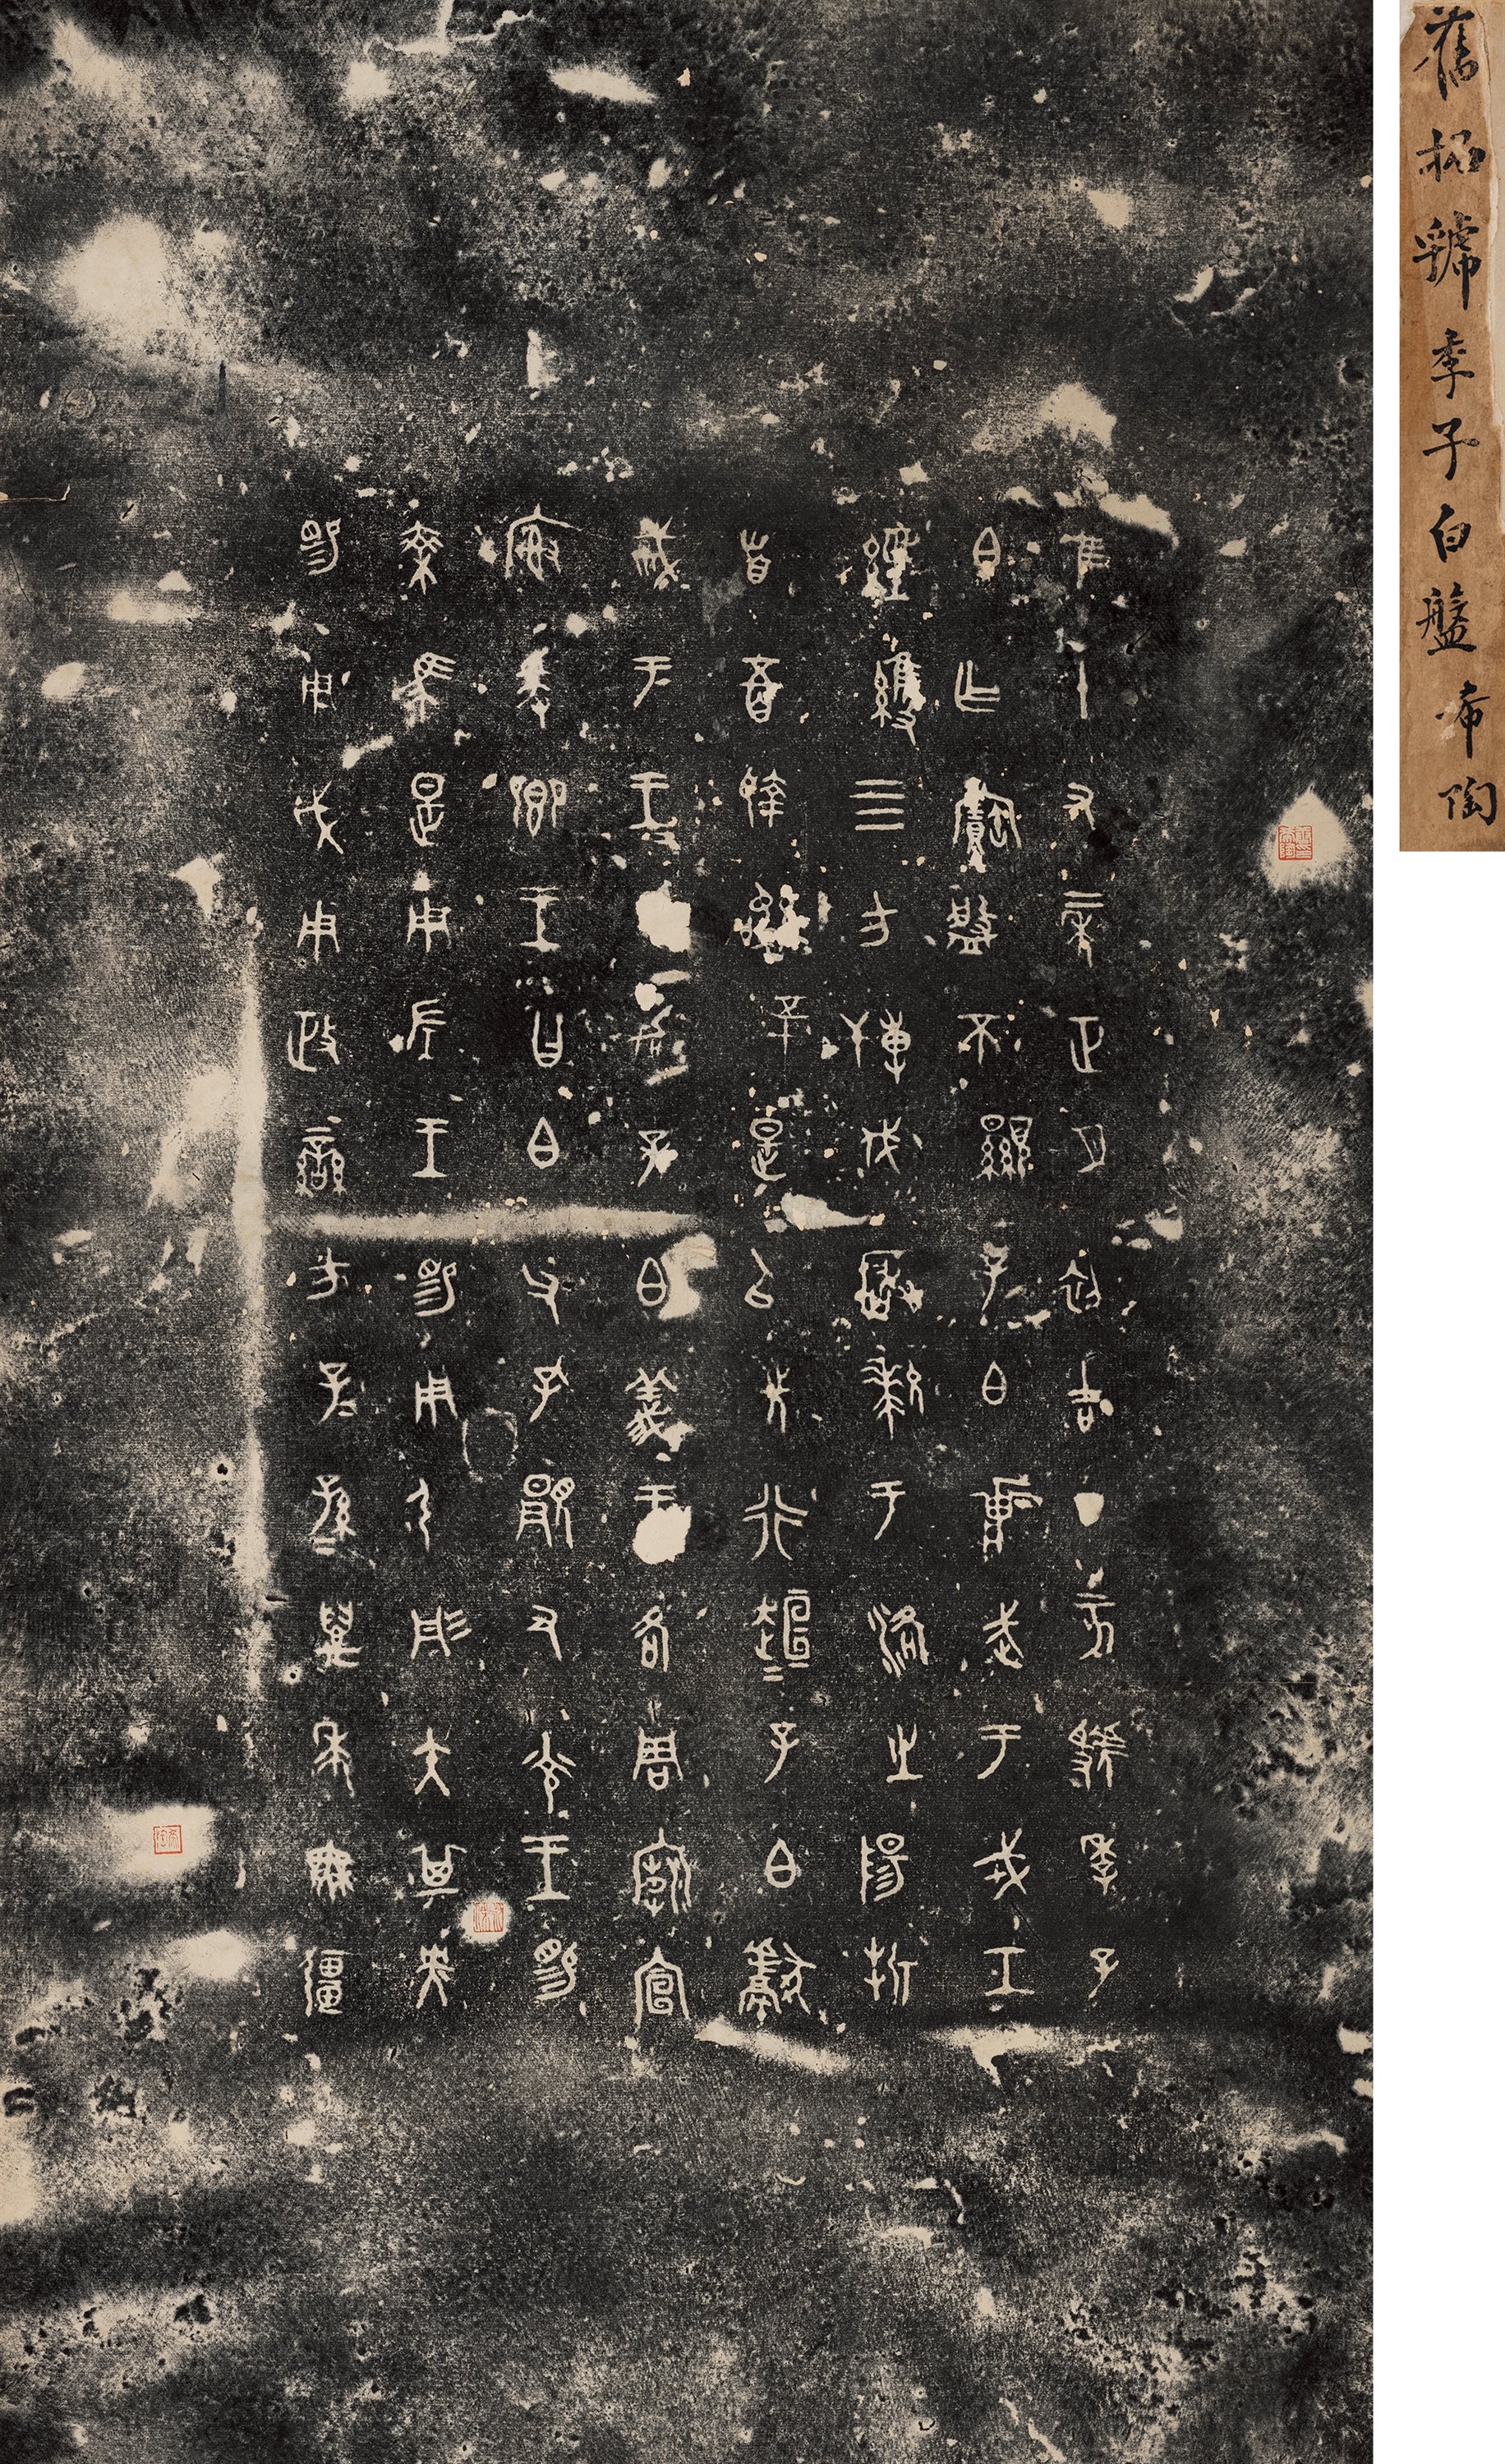 舊拓虢季子白盤 希陶
隹十又二年正月初吉丁亥虢季子
白乍寶盤不顯子白壯武于戎工
經維四方搏伐玁狁于洛之陽折
首五百執訊五十是以先行趄=子白獻
戒于王=孔加子白義王各周廟宣
廟爰鄉王曰白父孔顯又光王睗
乘馬是用左王睗用弓彤矢其央
睗用戉用政蠻方子=孫=萬年無疆